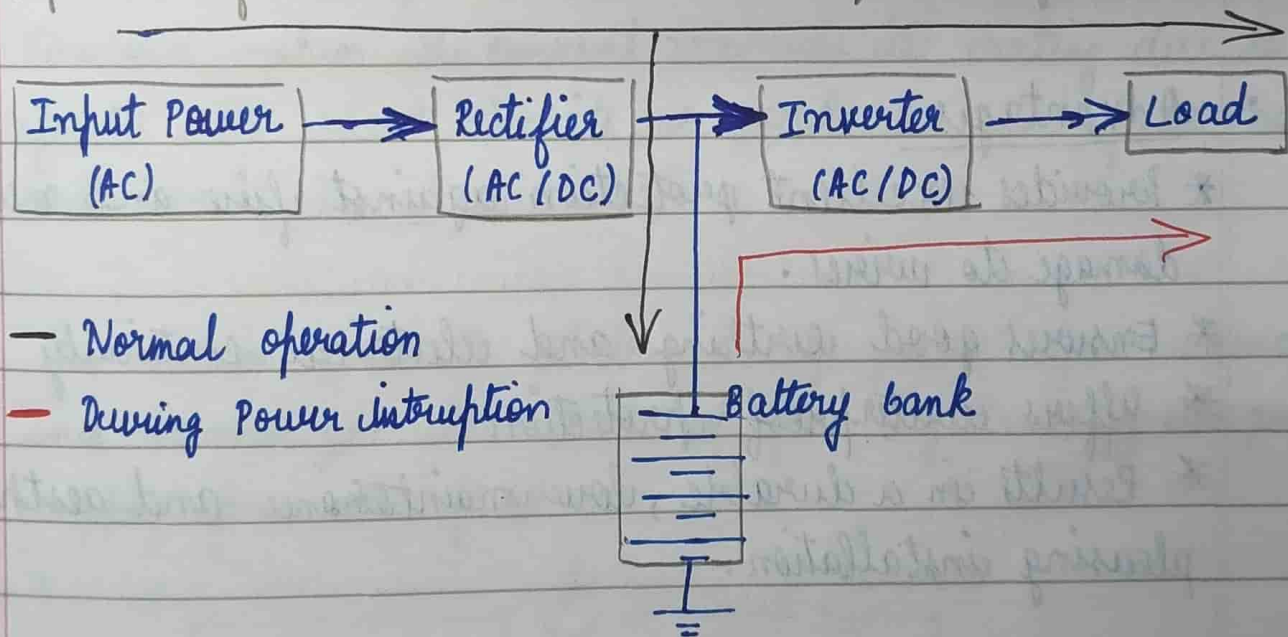 Input Power
(AC)
Rectifier
(AC/DC)
Inverter
(AC/DC)
Load
— Normal operation
— During Power intruption
Battery bank